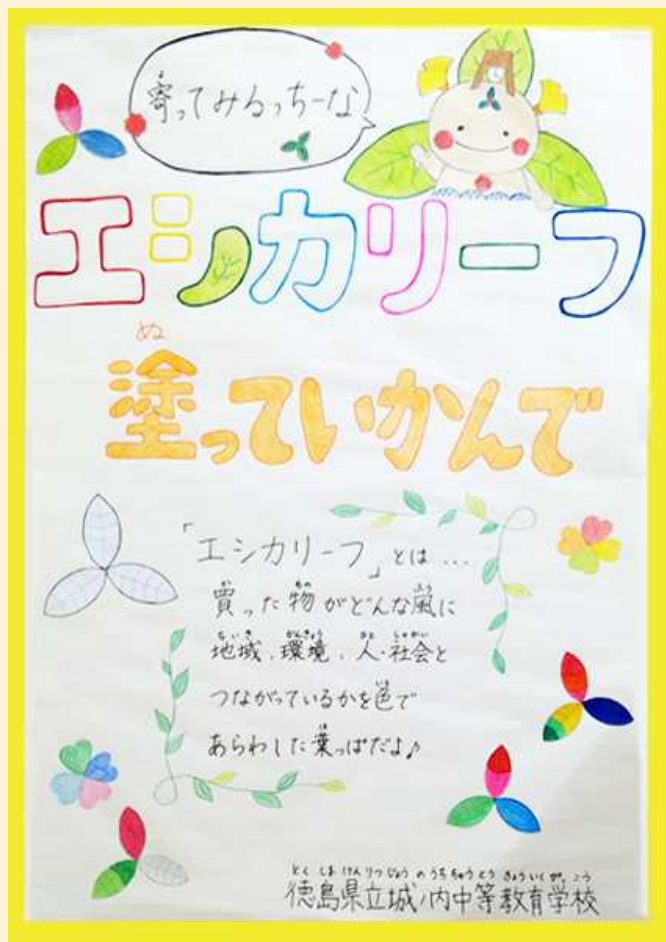 寄ってみるっちーな
エシカリーフ
ぬ
塗っていかんで
「エシカリーフ」とは…
か もの ふう
買った物がどんな風に
ちいき かんきょう ひと しゃかい
地域、環境、人・社会と
いろ
つながっているかを色で
は
あらわした葉っぱだよ♪
とくしまけんりつじょうのうちちゅうとうきょういくがっこう
徳島県立城ノ内中等教育学校